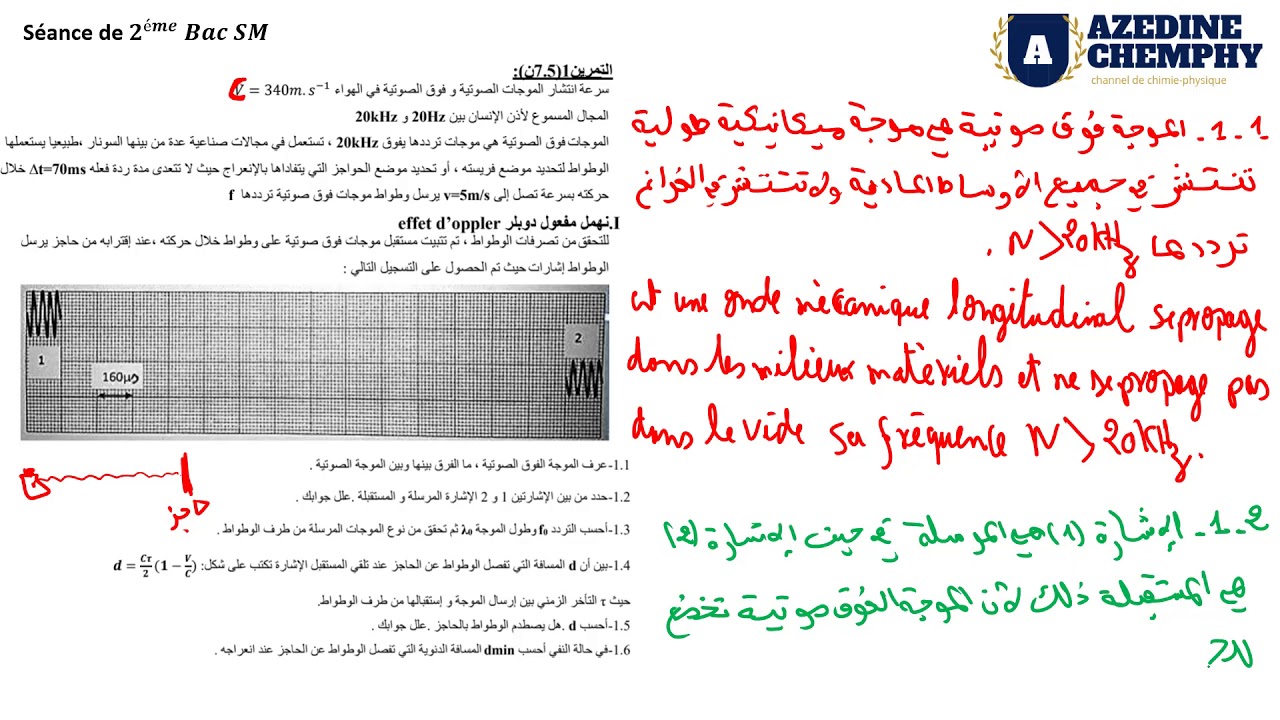 Séance de 2éme Bac SM
AZEDINE
CHEMPHY
channel de chimie-physique
A
التمرين1(7.5ن):
سرعة انتشار الموجات الصوتية و فوق الصوتية في الهواء V = 340m.s⁻¹
المجال المسموع لأذن الإنسان بين 20Hz و 20kHz
الموجات فوق الصوتية هي موجات ترددها يفوق 20kHz ، تستعمل في مجالات صناعية عدة من بينها السونار ،طبيعيا يستعملها
الوطواط لتحديد موضع فريسته ، أو تحديد موضع الحواجز التي يتفاداها بالإنعراج حيث لا تتعدى مدة ردة فعله Δt=70ms خلال
حركته بسرعة تصل إلى v=5m/s يرسل وطواط موجات فوق صوتية ترددها f
I.نهمل مفعول دوبلر effet d'oppler
للتحقق من تصرفات الوطواط ، تم تتبيت مستقبل موجات فوق صوتية على وطواط خلال حركته ،عند إقترابه من حاجز يرسل
الوطواط إشارات حيث تم الحصول على التسجيل التالي :
1
160μs
2
حاجز
1.1-عرف الموجة الفوق الصوتية ، ما الفرق بينها وبين الموجة الصوتية .
1.2-حدد من بين الإشارتين 1 و 2 الإشارة المرسلة و المستقبلة .علل جوابك .
1.3-أحسب التردد f₀ وطول الموجة λ₀ ثم تحقق من نوع الموجات المرسلة من طرف الوطواط .
1.4-بين أن d المسافة التي تفصل الوطواط عن الحاجز عند تلقي المستقبل الإشارة تكتب على شكل: d = Cτ/2 (1 − V/C)
حيث τ التأخر الزمني بين إرسال الموجة و إستقبالها من طرف الوطواط.
1.5-أحسب d .هل يصطدم الوطواط بالحاجز .علل جوابك .
1.6-في حالة النفي أحسب dmin المسافة الدنوية التي تفصل الوطواط عن الحاجز عند انعراجه .
1-1- الموجة فوق صوتية هي موجة ميكانيكية طولية
تنتشر في جميع الأوساط المادية ولا تنتشر في الفراغ
ترددها N>20kHz .
est une onde mécanique longitudinal se propage
dans les milieux matèriels et ne se propage pas
dans le vide sa fréquence N>20kHz.
1-2- الإشارة (1) هي المرسلة في حين الإشارة (2)
هي المستقبلة ذلك لأن الموجة الفوق صوتية تخضع